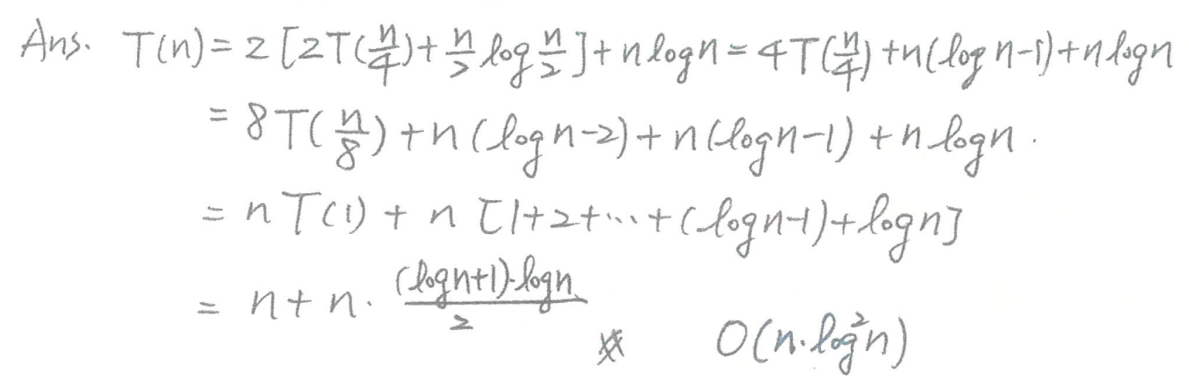 Ans. T(n) = 2 [2T(n/4) + n/2 log n/2] + n log n = 4T(n/4) + n(log n-1) + n log n
= 8T(n/8) + n(log n-2) + n(log n-1) + n log n.
= nT(1) + n [1+2+···+(log n-1)+log n]
= n + n · (log n+1)·log n / 2 ※ O(n·log²n)